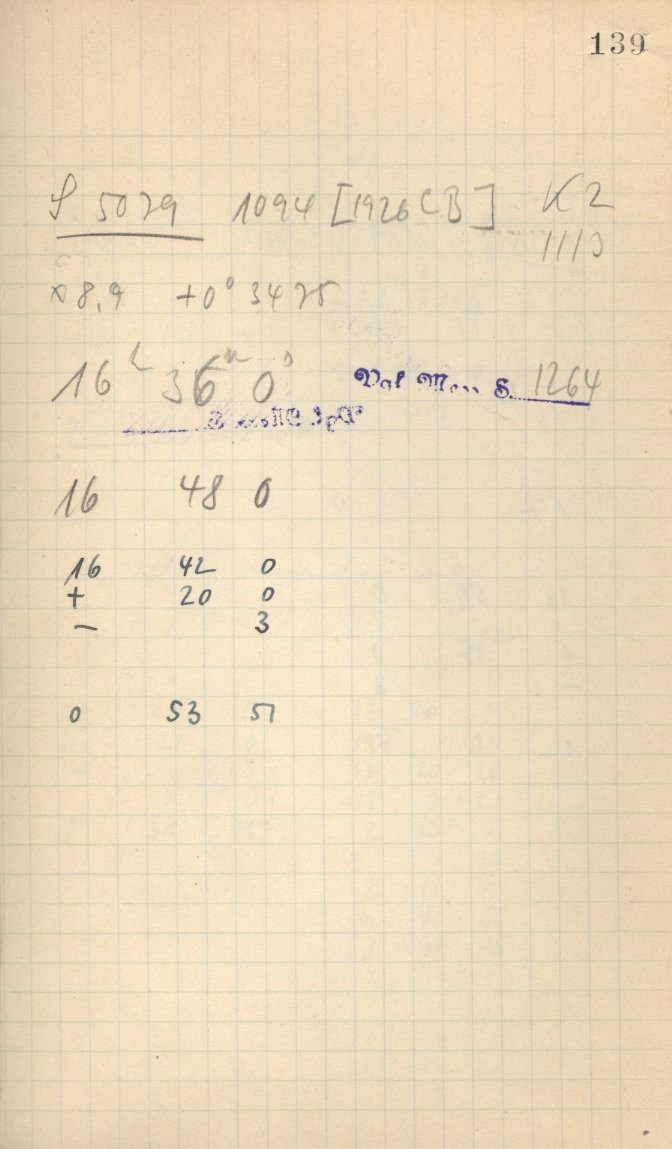 139
S 5029 1094 [1926 CB] K2
1113
8,9 +0° 34 25
16h 36m 0s 1264
16 48 0
16 42 0
+ 20 0
— 3
0 53 51